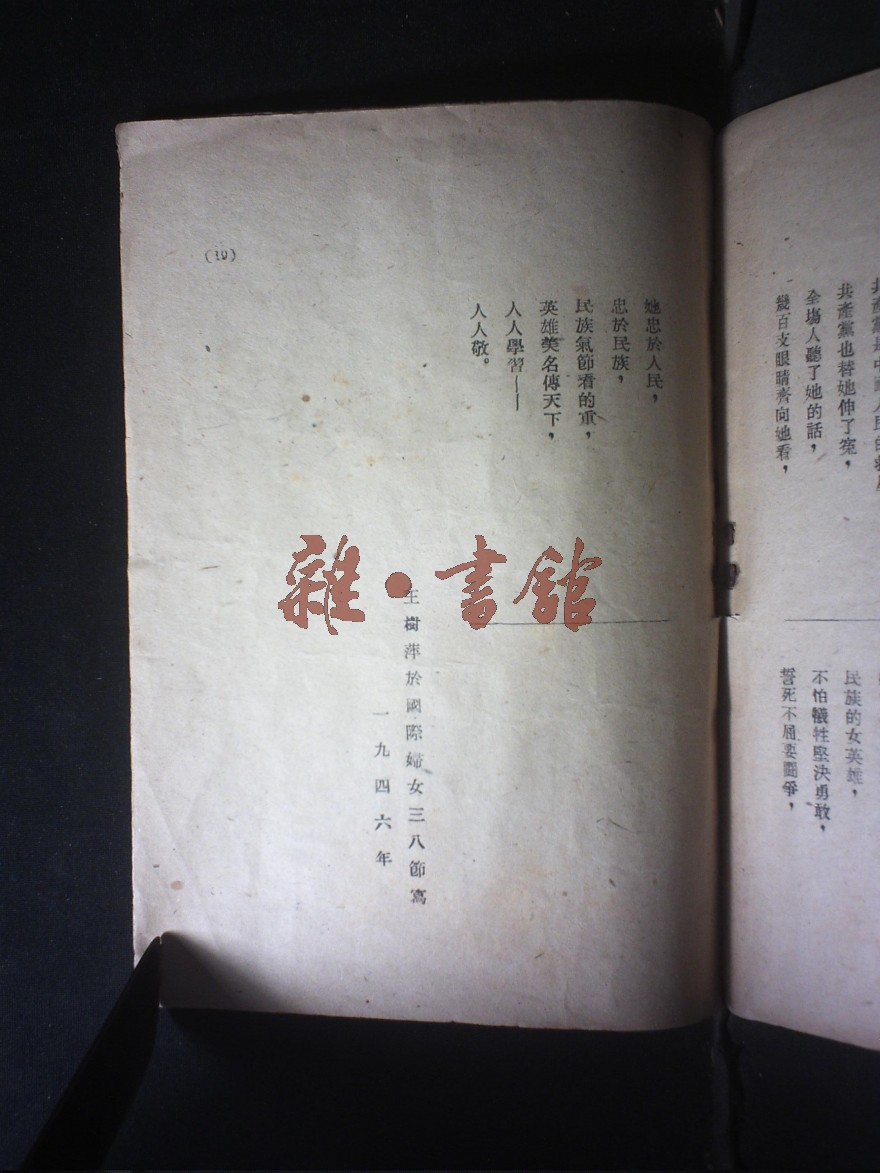 共產黨也替她伸了寃，
全塲人聽了她的話，
幾百支眼睛齊向她看，
民族的女英雄，
不怕犠牲堅決勇敢，
誓死不屈要鬪爭，
她忠於人民，
忠於民族，
民族氣節看的重，
英雄美名傳天下，
人人學習——
人人敬。
王樹萍於國際婦女三八節寫
一九四六年
(19)
雜·書館